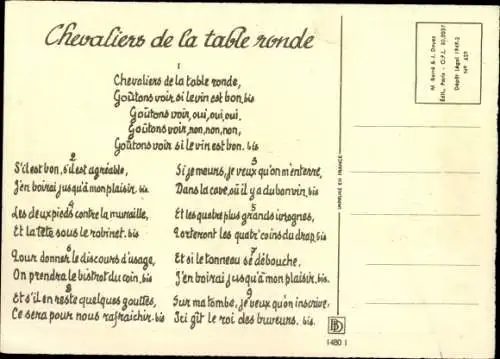 Chevaliers de la table ronde
1
Chevaliers de la table ronde,
Goûtons voir si le vin est bon. bis
Goûtons voir, oui, oui, oui.
Goûtons voir, non, non, non,
Goûtons voir si le vin est bon. bis
2
S'il est bon, s'il est agréable,
J'en boirai jusqu'à mon plaisir. bis
3
Si je meurs, je veux qu'on m'enterre,
Dans la cave, où il y a du bon vin. bis
4
Les deux pieds contre la muraille,
Et la tête sous le robinet. bis
5
Et les quatre plus grands ivrognes,
Porteront les quatr' coins du drap. bis
6
Pour donner le discours d'usage,
On prendra le bistrot du coin. bis
7
Et si le tonneau se débouche,
J'en boirai jusqu'à mon plaisir. bis.
8
Et s'il en reste quelques gouttes,
Ce sera pour nous rafraichir. bis
9
Sur ma tombe, je veux qu'on inscrive,
Ici gît le roi des buveurs. bis.
IMPRIMÉ EN FRANCE
M. Barré & J. Dayez
Édit., Paris - O.P.L. 30.0051
Dépôt Légal 1949-2
N°
BD
1480 I